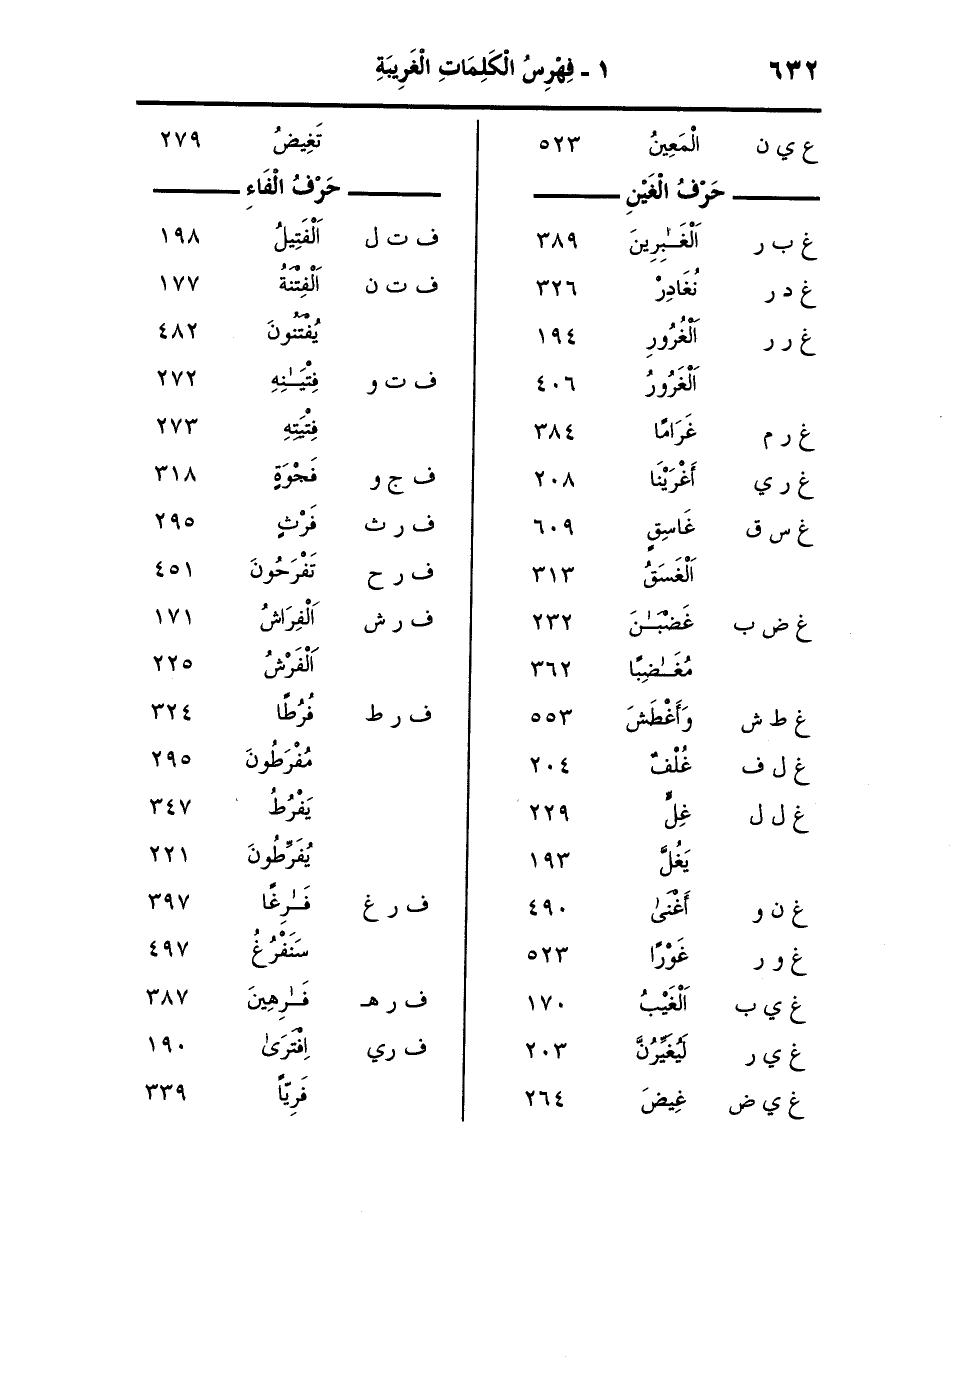 ٦٣٢
١ - فِهْرِسُ الْكَلِمَاتِ الْغَرِيبَةِ
ع ي ن الْمَعِينُ ٥٢٣
حَرْفُ الْغَيْنِ
غ ب ر اَلْغَـٰبِرِينَ ٣٨٩
غ د ر نُغَادِرْ ٣٢٦
غ ر ر اَلْغُرُورِ ١٩٤
اَلْغَرُورُ ٤٠٦
غ ر م غَرَامًا ٣٨٤
غ ر ي أَغْرَيْنَا ٢٠٨
غ س ق غَاسِقٍ ٦٠٩
اَلْغَسَقُ ٣١٣
غ ض ب غَضْبَـٰنَ ٢٣٢
مُغَـٰضِبًا ٣٦٢
غ ط ش وَأَغْطَشَ ٥٥٣
غ ل ف غُلْفٌ ٢٠٤
غ ل ل غِلٌّ ٢٢٩
يَغُلَّ ١٩٣
غ ن و أَغْنَىٰ ٤٩٠
غ و ر غَوْرًا ٥٢٣
غ ي ب اَلْغَيْبُ ١٧٠
غ ي ر لَيُغَيِّرُنَّ ٢٠٣
غ ي ض غِيضَ ٢٦٤
تَغِيضُ ٢٧٩
حَرْفُ الْفَاءِ
ف ت ل اَلْفَتِيلُ ١٩٨
ف ت ن اَلْفِتْنَةُ ١٧٧
يُفْتَنُونَ ٤٨٢
ف ت و فِتْيَـٰنِهِ ٢٧٢
فِتْيَتِهِ ٢٧٣
ف ج و فَجْوَةٍ ٣١٨
ف ر ث فَرْثٍ ٢٩٥
ف ر ح تَفْرَحُونَ ٤٥١
ف ر ش اَلْفِرَاشُ ١٧١
اَلْفَرْشُ ٢٢٥
ف ر ط فُرُطًا ٣٢٤
مُفْرَطُونَ ٢٩٥
يَفْرُطُ ٣٤٧
يُفَرِّطُونَ ٢٢١
ف ر غ فَـٰرِغًا ٣٩٧
سَنَفْرُغُ ٤٩٧
ف ر هـ فَـٰرِهِينَ ٣٨٧
ف ر ي اِفْتَرَىٰ ١٩٠
فَرِيّاً ٣٣٩